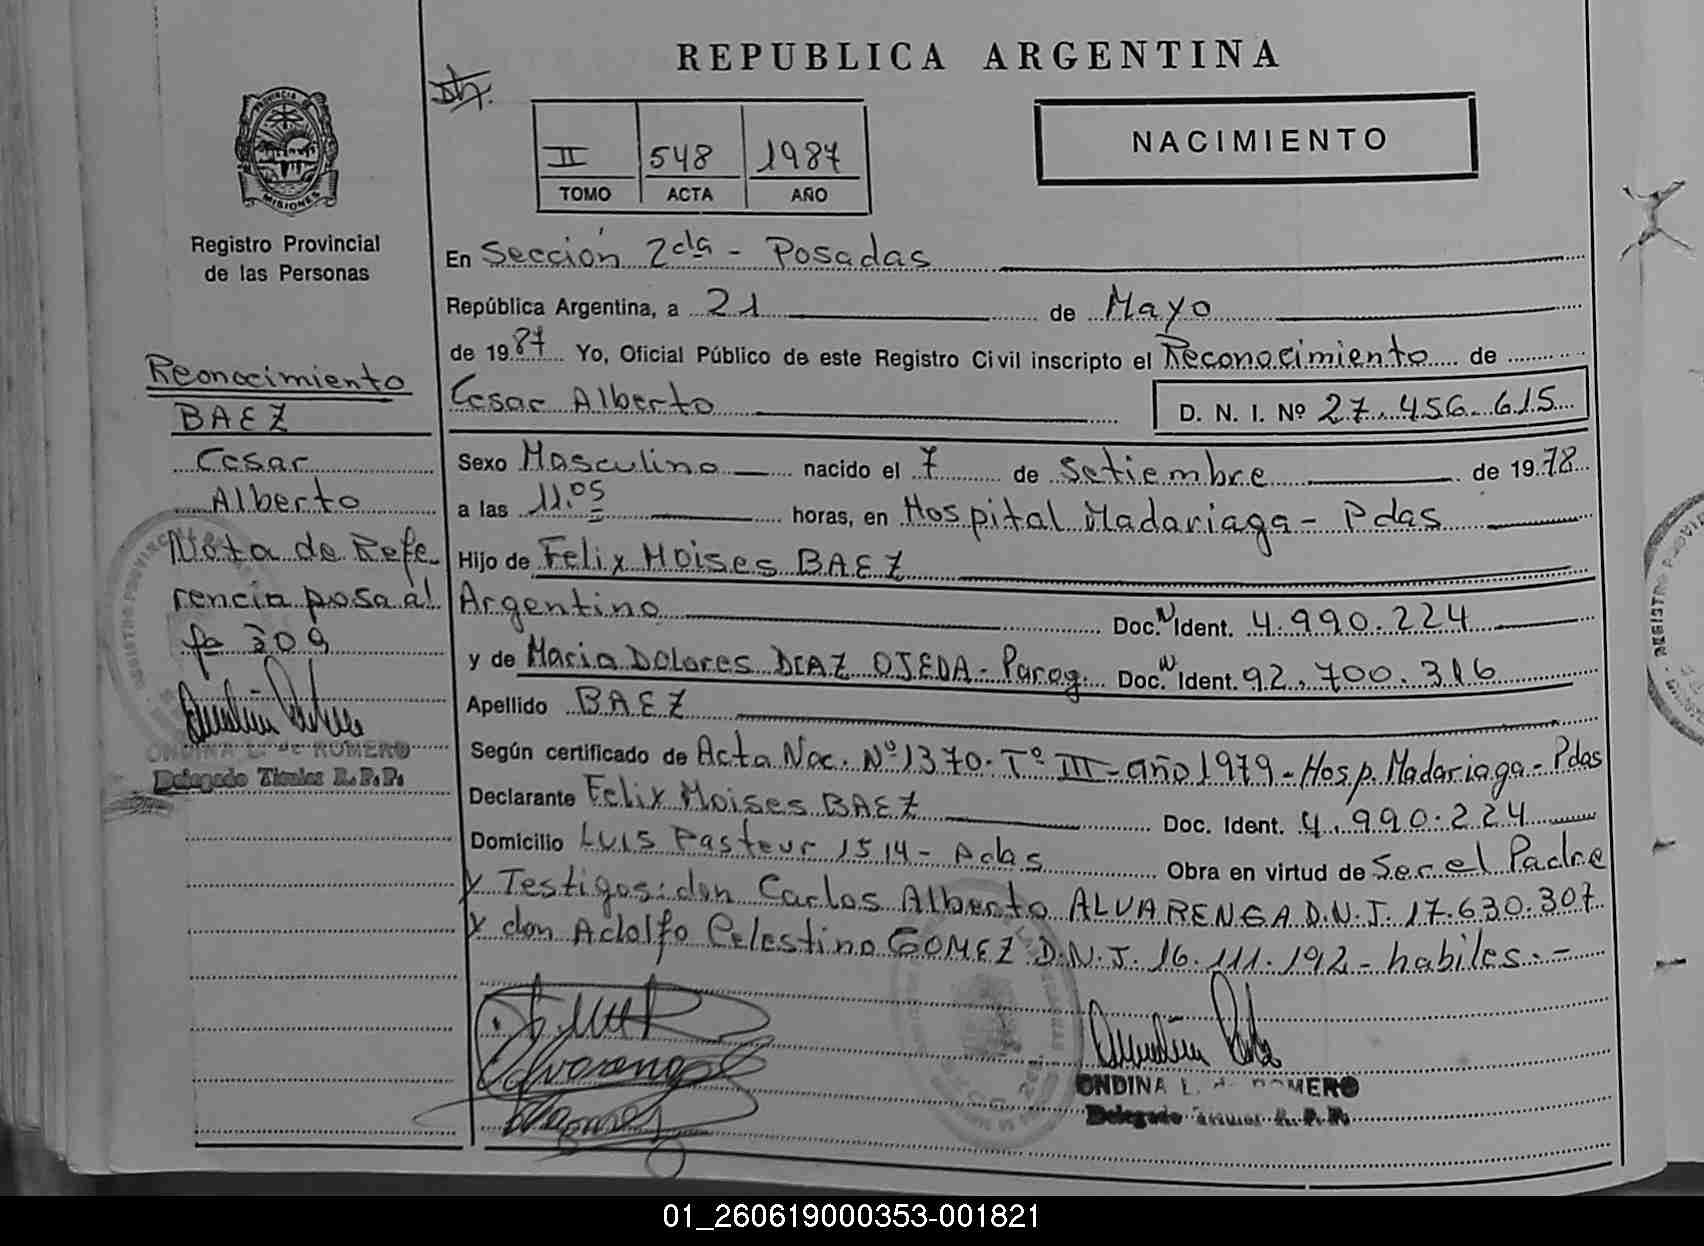 REPUBLICA ARGENTINA
PROVINCIA DE
MISIONES
Registro Provincial
de las Personas
II 548 1987
TOMO ACTA AÑO
NACIMIENTO
En Sección 2da - Posadas
República Argentina, a 21 de Mayo
de 1987 Yo, Oficial Público de este Registro Civil inscripto el Reconocimiento de
Cesar Alberto D. N. I. Nº 27.456.615
Sexo Masculino nacido el 7 de Setiembre de 1978
a las 11.05 horas, en Hospital Madariaga - Pdas
Hijo de Felix Moises BAEZ
Argentino Doc. N Ident. 4.990.224
y de Maria Dolores DIAZ OJEDA - Parag. Doc. N Ident. 92.700.316
Apellido BAEZ
Según certificado de Acta Nac. Nº 1370 - Tº III - año 1979 - Hosp. Madariaga - Pdas
Declarante Felix Moises BAEZ Doc. Ident. 4.990.224
Domicilio Luis Pasteur 1514 - Pdas Obra en virtud de Ser el Padre
y Testigos: don Carlos Alberto ALVARENGA D.N.I. 17.630.307
y don Adolfo Celestino GOMEZ D.N.I. 16.111.192 - habiles. -
Reonocimiento
BAEZ
Cesar
Alberto
Nota de Refe
rencia posa al
fº 309
ONDINA L. de ROMERO
Delegado Titular R.P.P.
ONDINA L. de ROMERO
Delegado Titular R.P.P.
01_260619000353-001821